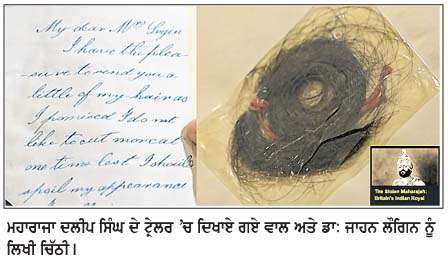 My dear Mrs Login
I have the plea-
sure to send you a
little of my hair as
I promised I do not
like to cut more at
one time lest I should
spoil my appearance
The Stolen Maharajah:
Britain's Indian Royal
ਮਹਾਰਾਜਾ ਦਲੀਪ ਸਿੰਘ ਦੇ ਟ੍ਰੇਲਰ 'ਚ ਦਿਖਾਏ ਗਏ ਵਾਲ ਅਤੇ ਡਾ: ਜਾਹਨ ਲੌਗਿਨ ਨੂੰ
ਲਿਖੀ ਚਿੱਠੀ।